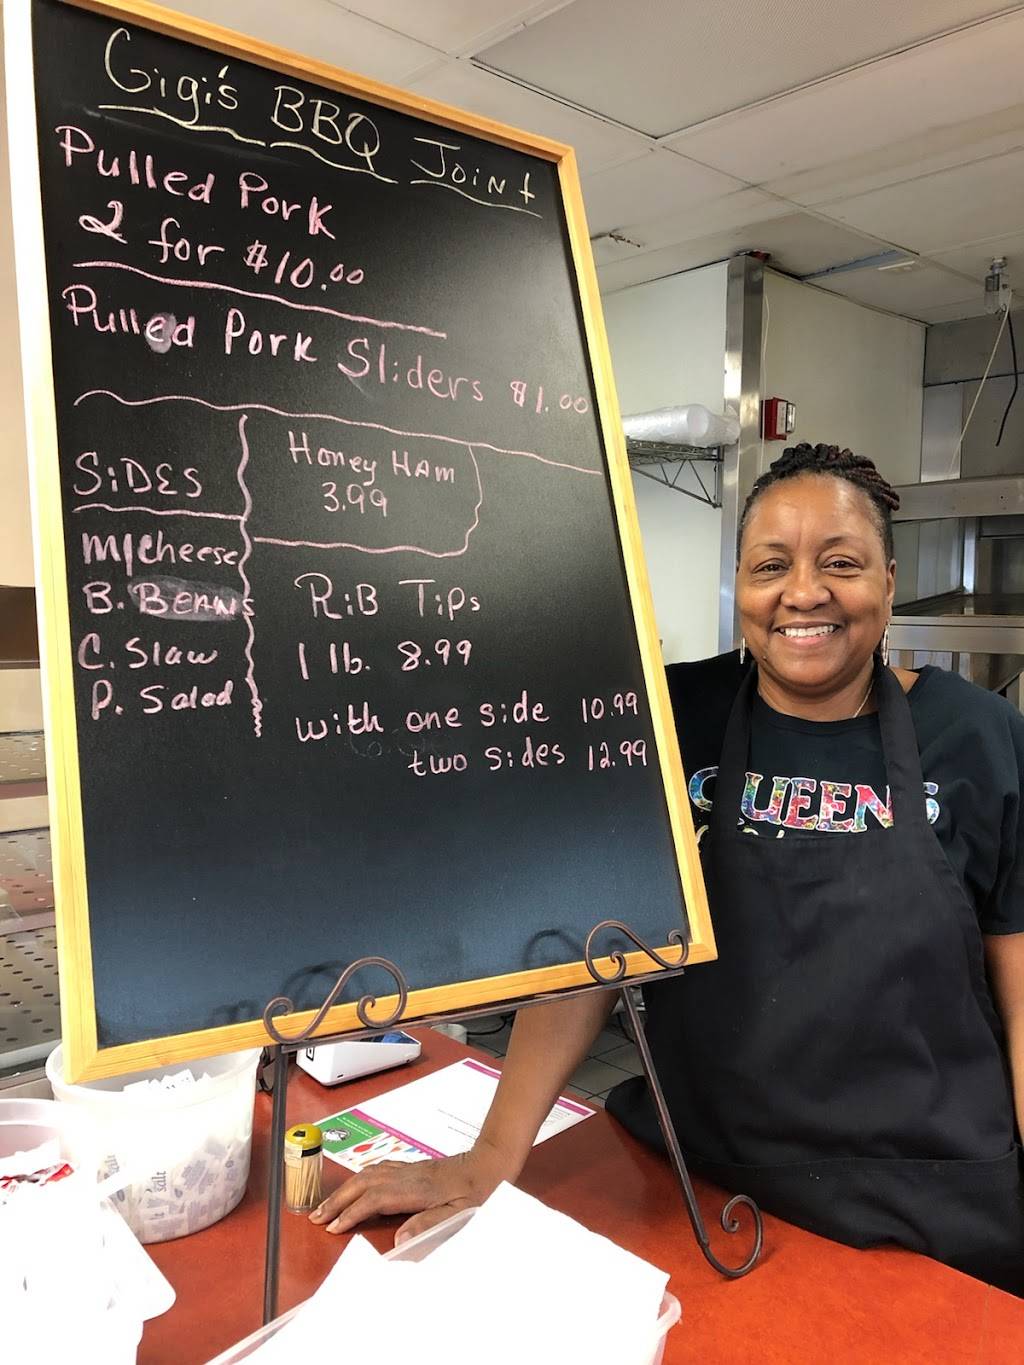 Gigi's BBQ Joint
Pulled Pork
2 for $10.00
Pulled Pork Sliders $1.00
SiDES
M/Cheese
B. BEANS
C. Slaw
P. Salad
Honey HAM
3.99
RiB Tips
1 lb. 8.99
with one side 10.99
two sides 12.99
QUEENS
salt